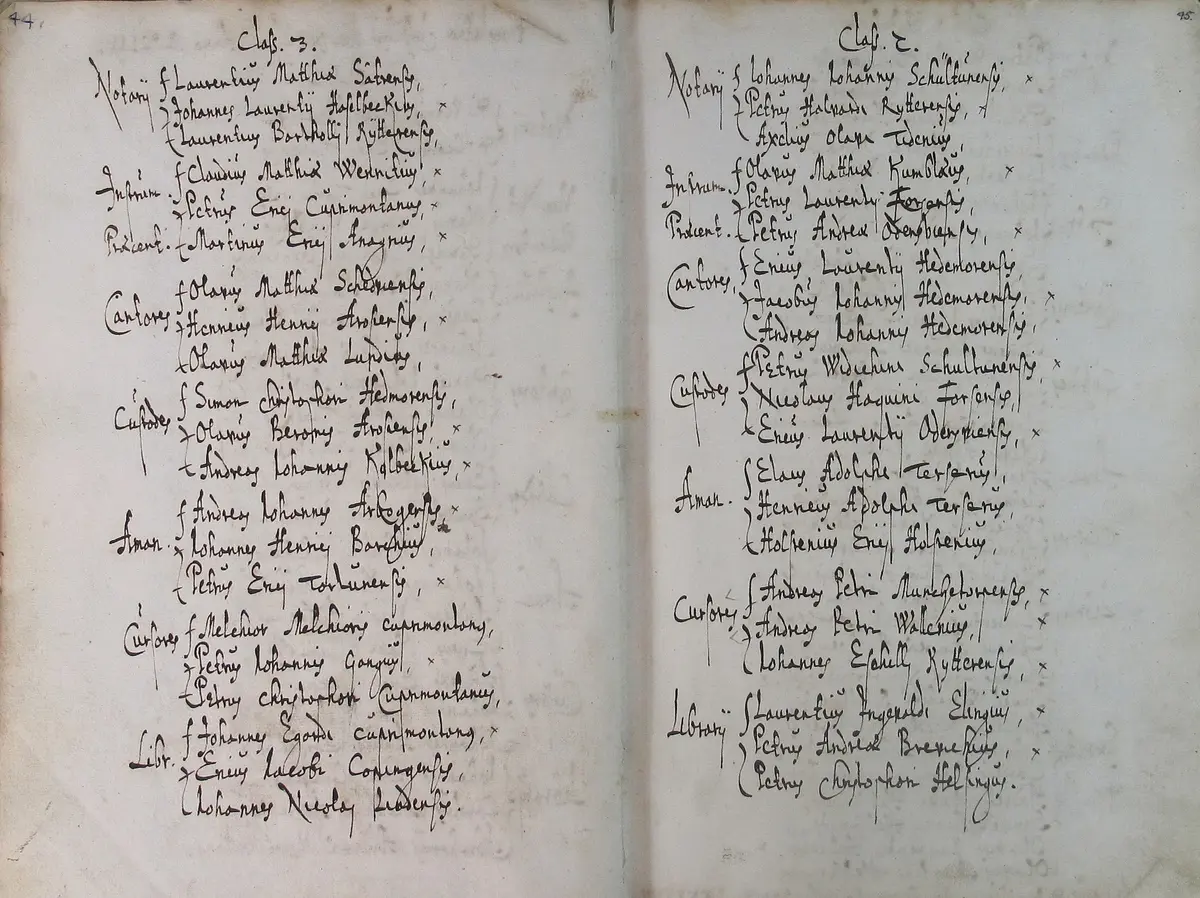 44.
Class. 3.
Notarij Laurentius Matthiæ Sätrensis,
Johannes Laurentij Haselbeckius, ×
Laurentius Bartholli Rytterensis,
Instrum. Claudius Matthiæ ×
Petrus Erici Cuprimontanus, ×
Præcent. Martinus Erici ×
Cantores Olavus Matthiæ Schedviensis,
Henricus Henrici Arosiensis, ×
Olavus Matthiæ Lundius,
Custodes Simon Christophori Hedmorensis,
Olavus Beronis Arosiensis, ×
Andreas Iohannis Kolbeckius, ×
Aman. Andreas Iohannis Arbogensis, ×
Iohannes Henrici Barchius,
Petrus Erici Torlunensis, ×
Cursores Melchior Melchioris cuprimontanus,
Petrus Iohannis Gangius, ×
Petrus Christophori Cuprimontanus,
Libr. Johannes Egardi cuprimontanus, ×
Ericus Iacobi Copingensis,
Iohannes Nicolai
45.
Class. 2.
Notarij Iohannes Iohannis Schultunensis, ×
Petrus Halvardi Rytterensis, ×
Axelius Olavi
Instrum. Olavus Matthiæ Kumblæus, ×
Petrus Laurentij Forsensis,
Præcent. Petrus Andreæ ×
Cantores, Ericus Laurentij Hedemorensis,
Jacobus Iohannis Hedemorensis, ×
Andreas Iohannis Hedemorensis,
Custodes Petrus Widichini Schultunensis, ×
Nicolaus Haquini Forsensis,
Ericus Laurentij ×
Aman. Elaus Adolphi Terserus,
Henricus Adolphi Terserus,
Holstenius Erici Holstenius,
Cursores Andreas Petri Muncketorpensis, ×
Andreas Petri Wallenius, ×
Iohannes Eschelli Rytterensis, ×
Librarij Laurentius Ingevaldi Elingius, ×
Petrus Andreæ ×
Petrus Christophori Helsingus.